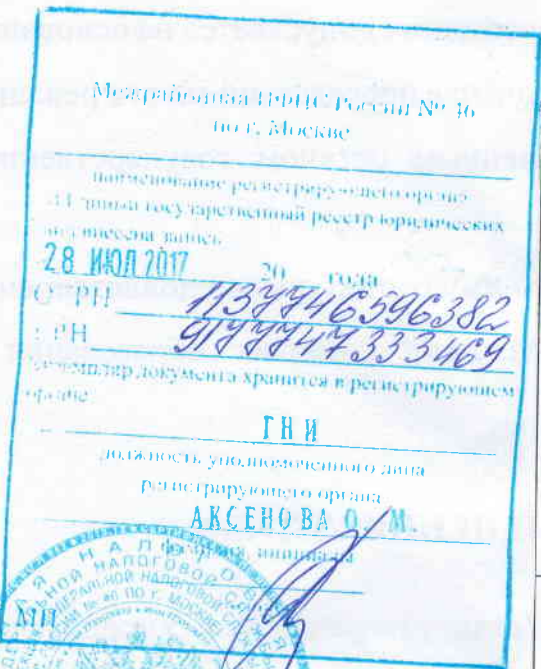 Межрайонная ИФНС России № 46
по г. Москве
наименование регистрирующего органа
в Единый государственный реестр юридических
лиц внесена запись
28 ИЮЛ 2017 20 года
ОГРН 1137746596382
ГРН 9177747333469
Экземпляр документа хранится в регистрирующем
органе
ГНИ
должность уполномоченного лица
регистрирующего органа
АКСЕНОВА О. М.
фамилия, инициалы
МП